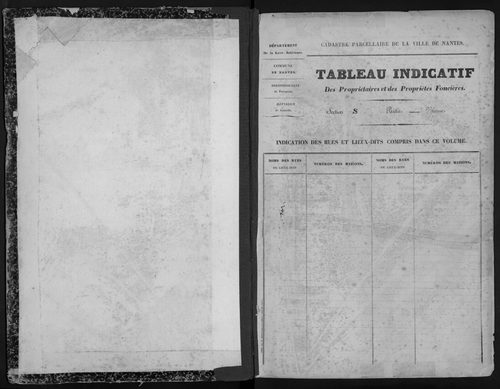 DÉPARTEMENT
De la Loire-Inférieure.
COMMUNE
DE NANTES.
CADASTRE PARCELLAIRE DE LA VILLE DE NANTES.
TABLEAU INDICATIF
Des Propriétaires et des Propriétés Foncières.
Section S
INDICATION DES RUES ET LIEUX-DITS COMPRIS DANS CE VOLUME.
NOMS DES RUES OU LIEUX-DITS
NUMÉROS DES MAISONS.
NOMS DES RUES OU LIEUX-DITS
NUMÉROS DES MAISONS.